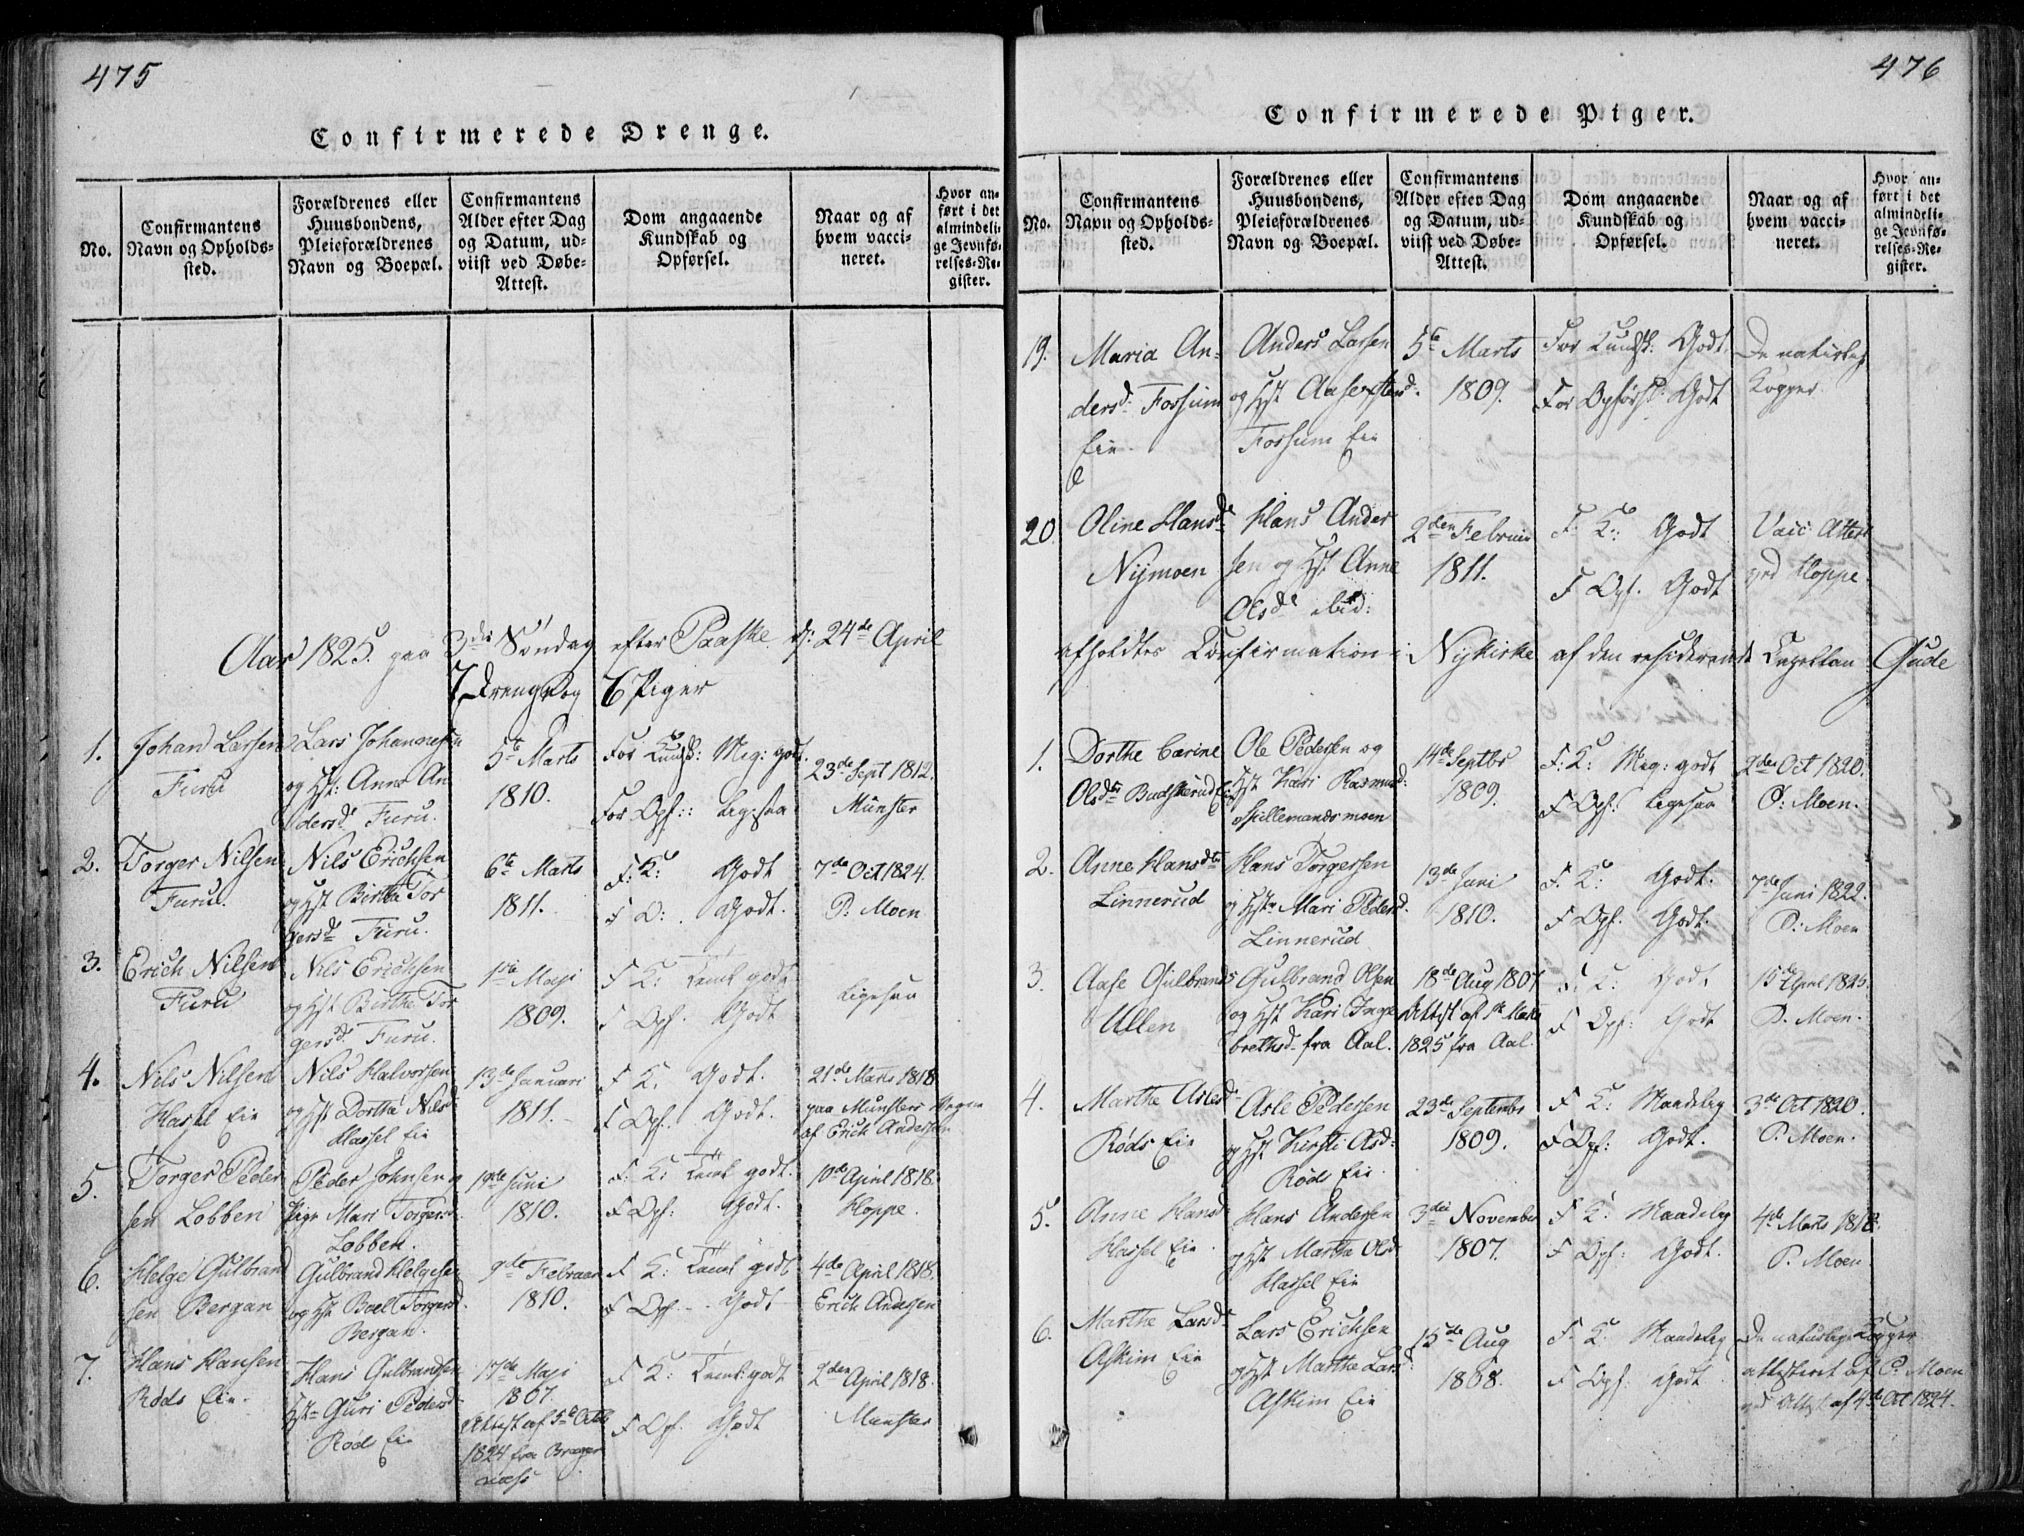 475
Confirmerede Drenge.
No.
Confirmantens
Navn og Opholds-
sted.
Forældrenes eller
Huusbondens,
Pleieforældrenes
Navn og Boepæl.
Confirmantens
Alder efter Dag
og Datum, ud-
viist ved Døbe-
Attest.
Dom angaaende
Kundskab og
Opførsel.
Naar og af
hvem vacci-
neret.
Hvor an-
ført i det
almindeli-
ge Jevnfø-
relses-Re-
gister.
Aar 1825. paa 3die Søndag efter Paaske d: 24de April
7 Drenge og 6 Piger
1.
Johan Larsen
Furu
Lars Johannesen
og Hst: Anne An
dersd. Furu.
5te Marts
1810.
For Kundsk: Meg: godt.
For Opf:: Ligesaa
23de Sept 1812.
Münster
2.
Torger Nilsen
Furu.
Nils Erichsen
og Hst Birthe Tor
gersd. Furu.
6te Marts
1811.
F: K: Godt
F O: Godt.
7de Oct 1824.
P: Moen
3.
Erich Nilsen
Furu
Nils Erichsen
og Hst Birthe Tor
gersd. Furu.
1ste Maji
1809.
F K: Teml godt
F Opf. Godt
Ligesaa
4.
Nils Nilsen
Hassel Eie
Nils Halvorsen
og Hst Dorthe Nilsd.
Hassel Eie
13de Januari
1811.
F K. Godt.
F Opf. Godt.
21de Marts 1818
paa Münsters Vegne
af Erich Andersen
5.
Torger Peder
sen Lobben
Peder Johnsen og
Pige Mari Torgersd.
Lobben.
Juni
1810.
F: K: Teml godt.
F Opf: Godt.
10de April 1818.
Hoppe.
6.
Helge Gulbrand
sen Bergan
Gulbrand Helgesen
og Hst Boel Torgersd.
Bergan.
9de Februar
1810.
F K: Teml godt
F Opf. Godt
4de April 1818.
Erich Andersen
7.
Hans Hansen
Røds Eie.
Hans Gulbrandsen
Hst Guri Pedersd
Rød Eie
17de Maji
1807.
Attest af 5te Octb
1824 fra Brager
næss
F K: Teml: godt
F Opf. Godt
2den April 1818.
Münster
476
Confirmerede Piger.
No.
Confirmantens
Navn og Opholds-
sted.
Forældrenes eller
Huusbondens,
Pleieforældrenes
Navn og Boepæl.
Confirmantens
Alder efter Dag
og Datum, ud-
viist ved Døbe-
Attest.
Dom angaaende
Kundskab og
Opførsel.
Naar og af
hvem vacci-
neret.
Hvor an-
ført i det
almindeli-
ge Jevnfø-
relses-Re-
gister.
19.
Maria An-
dersd. Fossum
Eie.
Anders Larsen
og Hst Aase
Fossum Eie
5te Marts
1809.
For Kundsk: Godt.
For Opførsel: Godt
De naturlige
Kopper
20.
Oline Hansd.
Nymoen
Hans Ander
sen og Hst Anne
Olsd. ibid:
2den Februar
1811.
F: K: Godt
F Opf. Godt
Vacc Attest
ved Hoppe.
afholdtes Confirmation i Nykirke af den residerende Capellan Gude
1.
Dorthe Carine
Olsd. Buskerud Eie
Ole Pedersen og
Hst Kari Rasmusd:
Skillemandsmoen
14de Septbr
1809.
F: K: Meg: godt
F Opf. Ligesaa
2den Oct 1820.
P: Moen.
2.
Anne Hansdtr
Linnerud
Hans Torgersen
og Hst Mari Pedersd.
Linnerud
13de Juni
1810.
F. K: Godt.
F Opf. Godt.
7de Juni 1822.
P: Moen
3.
Aase Gulbrands
Ullen
Gulbrand Olsen
og Hst Kari Inge
brethsd. fra Aal.
18de Aug 1807
Attest af 1ste Marts
1825 fra Aal.
F. K: Godt.
F Opf: Godt
15de April 1825.
P. Moen.
4.
Marthe Aslesd.
Røds Eie
Asle Pedersen
og Hst Kirsti Asd:
Rød Eie
23de Septembr
1809.
F K: Maadelig
F Opf: Godt.
3die Oct 1820.
P. Moen.
5.
Anne Hansd
Hassel Eie.
Hans Andersen
og Hst Marthe Olsd.
Hassel Eie
3die November
1807.
F K: Maadelig
F Opf: Godt.
4de Marts 1818.
P: Moen
6.
Marthe Larsd.
Askim Eie
Lars Erichsen
og Hst Marthe Larsd:
Askim Eie
15de Aug
1808.
F: K: Maadelig
F Opf: Godt
De naturlige Kopper
attesteret af P: Moen
ved Attest af 4de Oct 1824.